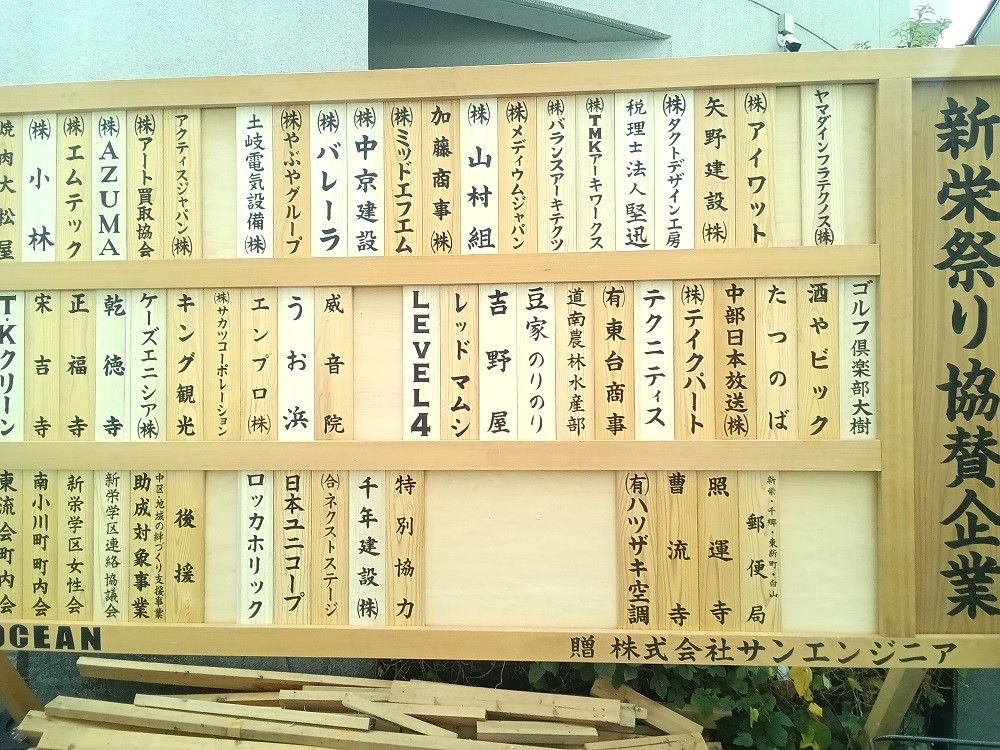 新栄祭り協賛企業
ヤマダインフラテクノス㈱
㈱アイワット
矢野建設㈱
㈱タクトデザイン工房
税理士法人堅迅
㈱TMKアーキワークス
㈱バランスアーキテクツ
㈱メディウムジャパン
㈱山村組
加藤商事㈱
㈱ミッドエフエム
㈱中京建設
㈱バレーラ
㈱やぶやグループ
土岐電気設備㈱
アクティスジャパン㈱
㈱アート買取協会
㈱AZUMA
㈱エムテック
㈱小林
焼肉大松屋
ゴルフ倶楽部大樹
酒やビック
たつのば
中部日本放送㈱
㈱テイクパート
テクニティス
㈲東台商事
道南農林水産部
豆家のりのり
吉野屋
レッドマムシ
LEVEL4
威音院
うお浜
エンプロ㈱
㈱サカツコーポレーション
キング観光
ケーズエニシア㈱
乾徳寺
正福寺
宋吉寺
T・Kクリーン
新栄・千郷・東新町・白山
郵便局
照運寺
曹流寺
㈲ハツザキ空調
特別協力
千年建設㈱
㈾ネクストステージ
日本ユニコープ
ロッカホリック
後援
中区・地域の絆づくり支援事業
助成対象事業
新栄学区連絡協議会
新栄学区女性会
南小川町町内会
東流会町内会
OCEAN
贈 株式会社サンエンジニア